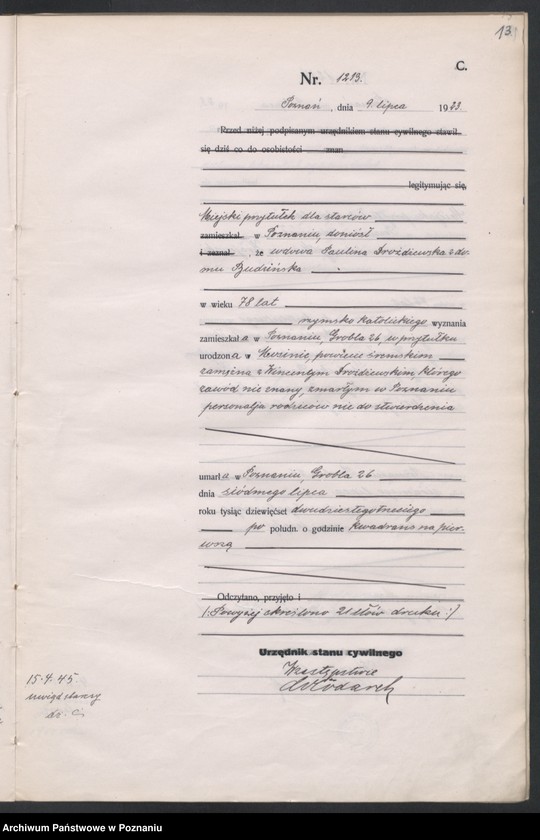 13
C.
Nr. 1213.
Poznań, dnia 9. lipca 1923.
Przed niżej podpisanym urzędnikiem stanu cywilnego stawił
się dziś co do osobistości znan
legitymując się,
Miejski przytułek dla starców
zamieszkał w Poznaniu, doniósł
i zeznał, że wdowa Paulina Drożdżewska z do-
mu Budzińska
w wieku 78 lat
rzymsko katolickiego wyznania
zamieszkała w Poznaniu, Grobla 26, w przytułku
urodzona w powiecie śremskim
zamężna z Wincentym Drożdżewskim, którego
zawód nie znany, zmarłym w Poznaniu
personalja rodziców nie do stwierdzenia
umarła w Poznaniu, Grobla 26
dnia siódmego lipca
roku tysiąc dziewięćset dwudziestego trzeciego
po połudn. o godzinie kwadrans na pier-
wszą
Odczytano, przyjęto i
/: Powyżej skreślono 21 słów druku :/
Urzędnik stanu cywilnego
W zastępstwie
Włodarek
15.4.45